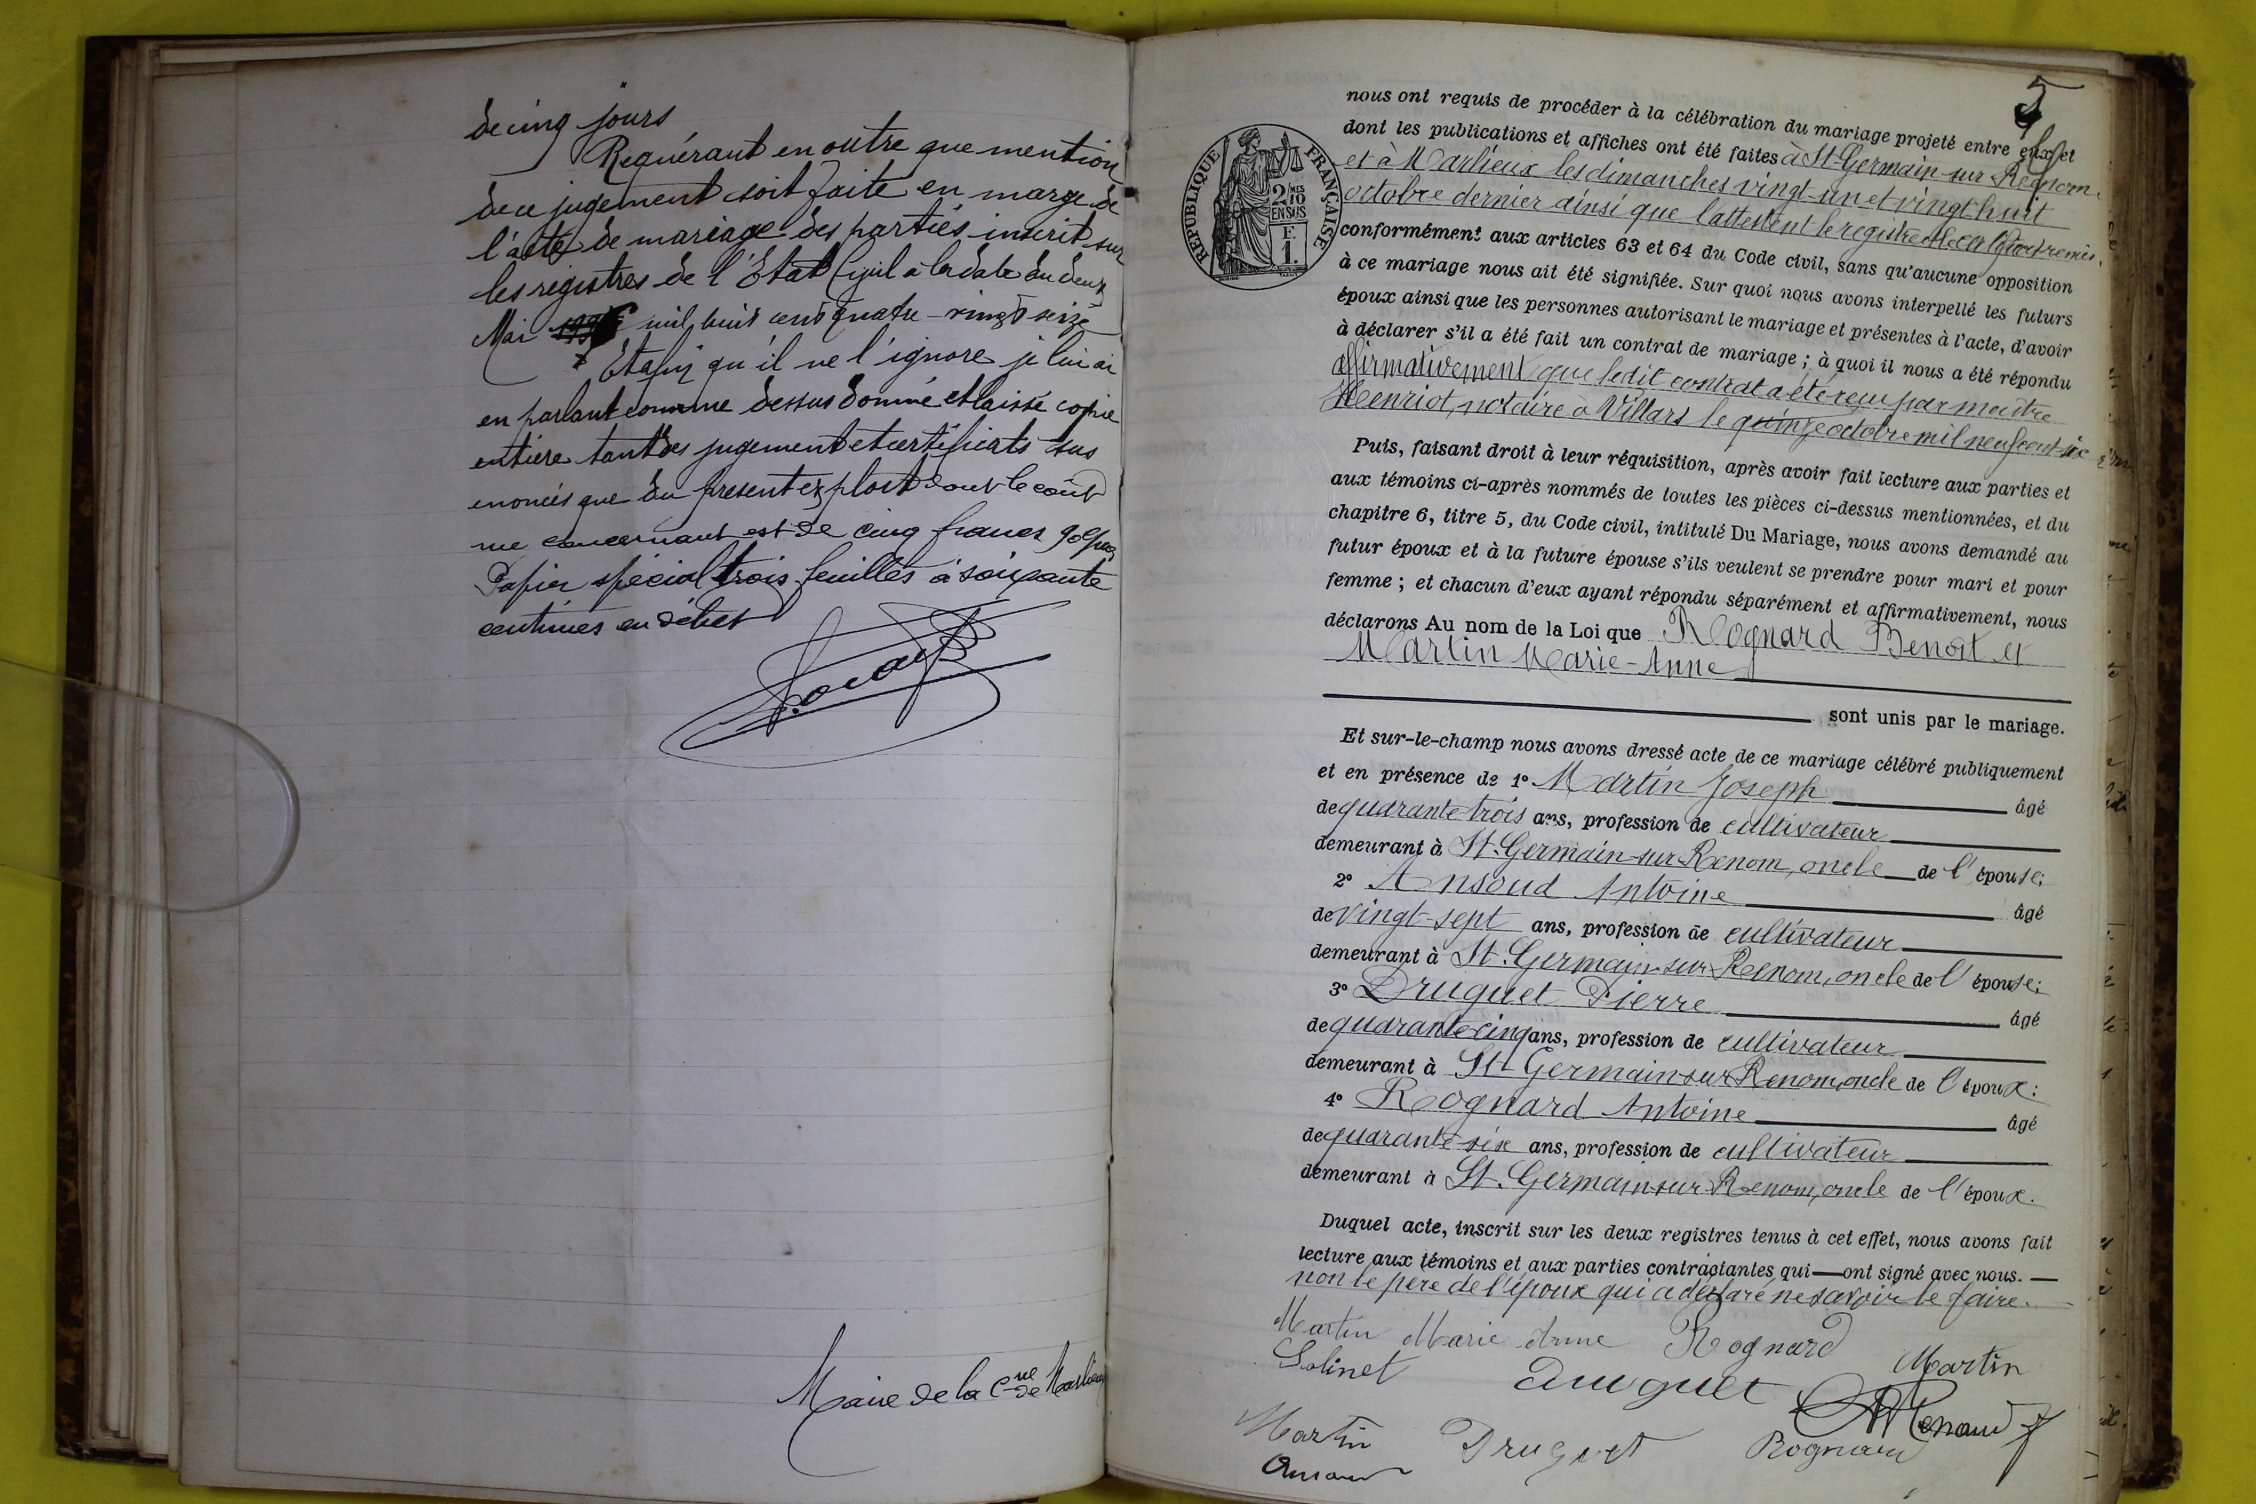 de cinq jours
Requérant en outre que mention
de ce jugement soit faite en marge de
l'acte de mariage des parties inscrit sur
les registres de l'Etat Civil à la date du deux
Mai mil huit cent quatre-vingt seize
Et afin qu'il ne l'ignore je lui ai
en parlant comme dessus donné et laissé copie
entière tant des jugement et certificats sus
énoncés que du présent exploit dont le coût
me concernant est de cinq francs 90
Papier spécial trois feuilles à soixante
centimes en débet
Maire de la Cne de Marlieux
5
RÉPUBLIQUE FRANÇAISE
2/10 MES
EN SUS
F.
1.
nous ont requis de procéder à la célébration du mariage projeté entre eux et
dont les publications et affiches ont été faites à St-Germain-sur-Renom
et à Marlieux les dimanches vingt-un et vingt huit
octobre dernier ainsi que l'attestent le registre et le certificat remis
conformément aux articles 63 et 64 du Code civil, sans qu'aucune opposition
à ce mariage nous ait été signifiée. Sur quoi nous avons interpellé les futurs
époux ainsi que les personnes autorisant le mariage et présentes à l'acte, d'avoir
à déclarer s'il a été fait un contrat de mariage ; à quoi il nous a été répondu
affirmativement que ledit contrat a été reçu par maître
Henriot, notaire à Villars le quinze octobre mil neuf cent six
Puis, faisant droit à leur réquisition, après avoir fait lecture aux parties et
aux témoins ci-après nommés de toutes les pièces ci-dessus mentionnées, et du
chapitre 6, titre 5, du Code civil, intitulé Du Mariage, nous avons demandé au
futur époux et à la future épouse s'ils veulent se prendre pour mari et pour
femme ; et chacun d'eux ayant répondu séparément et affirmativement, nous
déclarons Au nom de la Loi que Rognard Benoît et
Martin Marie-Anne
sont unis par le mariage.
Et sur-le-champ nous avons dressé acte de ce mariage célébré publiquement
et en présence de 1° Martin Joseph âgé
de quarante-trois ans, profession de cultivateur
demeurant à St-Germain-sur-Renom, oncle de l'épouse;
2° Ansoud Antoine âgé
de vingt-sept ans, profession de cultivateur
demeurant à St.Germain-sur-Renom, oncle de l'épouse;
3° Druguet Pierre âgé
de quarante cinq ans, profession de cultivateur
demeurant à St Germain-sur-Renom, oncle de l'époux:
4° Rognard Antoine âgé
de quarante-six ans, profession de cultivateur
demeurant à St.Germain-sur-Renom, oncle de l'époux.
Duquel acte, inscrit sur les deux registres tenus à cet effet, nous avons fait
lecture aux témoins et aux parties contractantes qui — ont signé avec nous. —
non le père de l'époux qui a déclaré ne savoir le faire.
Martin Marie Anne Rognard
Solinet Druguet Martin
Renaud
Martin Druguet Rognard
Ansoud